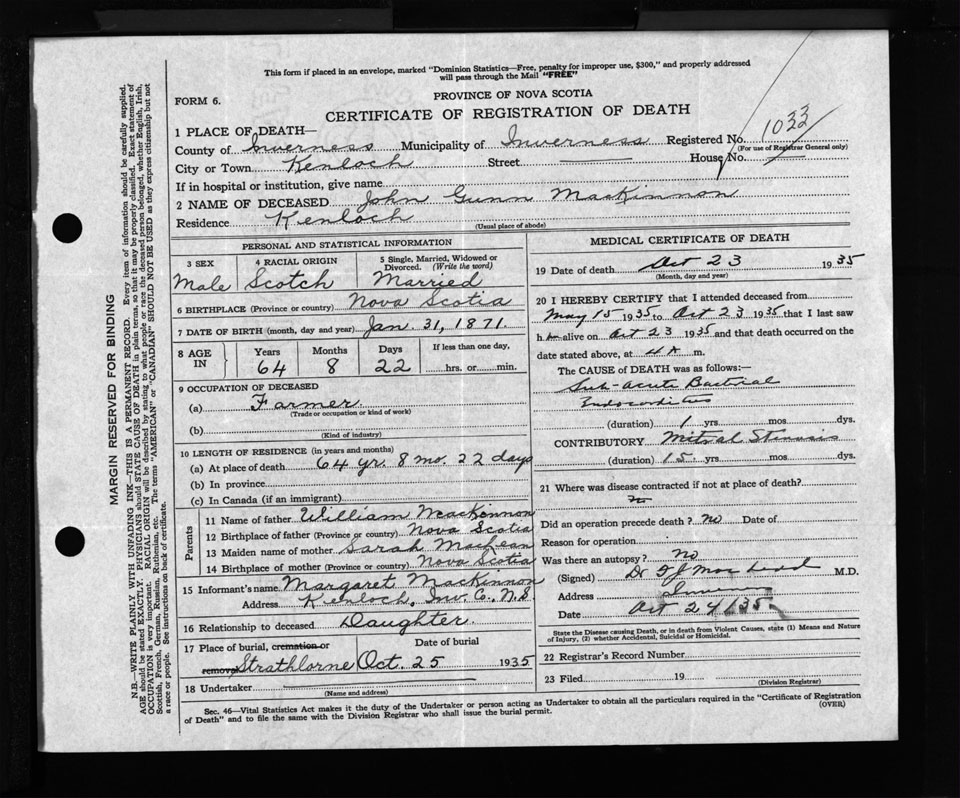 This form if placed in an envelope, marked "Dominion Statistics—Free, penalty for improper use, $300," and properly addressed
will pass through the Mail "FREE"
FORM 6.
PROVINCE OF NOVA SCOTIA
CERTIFICATE OF REGISTRATION OF DEATH
1 PLACE OF DEATH—
County of Inverness Municipality of Inverness Registered No. 1033
(For use of Registrar General only)
City or Town Kenloch Street House No.
If in hospital or institution, give name
2 NAME OF DECEASED John Gunn MacKinnon
Residence Kenloch
(Usual place of abode)
PERSONAL AND STATISTICAL INFORMATION
3 SEX 4 RACIAL ORIGIN 5 Single, Married, Widowed or
Divorced. (Write the word)
Male Scotch Married
6 BIRTHPLACE (Province or country) Nova Scotia
7 DATE OF BIRTH (month, day and year) Jan. 31, 1871.
8 AGE IN Years Months Days If less than one day,
64 8 22 hrs. or min.
9 OCCUPATION OF DECEASED
(a) Farmer
(Trade or occupation or kind of work)
(b)
(Kind of industry)
10 LENGTH OF RESIDENCE (in years and months)
(a) At place of death 64 yr. 8 mo. 22 days
(b) In province
(c) In Canada (if an immigrant)
Parents
11 Name of father William MacKinnon
12 Birthplace of father (Province or country) Nova Scotia
13 Maiden name of mother Sarah MacLean
14 Birthplace of mother (Province or country) Nova Scotia
15 Informant's name Margaret MacKinnon
Address Kenloch, Inv. Co., N.S.
16 Relationship to deceased Daughter.
17 Place of burial, cremation or Date of burial
removal Strathlorne Oct. 25 1935
18 Undertaker
(Name and address)
MEDICAL CERTIFICATE OF DEATH
19 Date of death Oct 23 1935
(Month, day and year)
20 I HEREBY CERTIFY that I attended deceased from
May 15 1935 to Oct 23 1935 that I last saw
h im alive on Oct 23 1935 and that death occurred on the
date stated above, at 4 A m.
The CAUSE of DEATH was as follows:—
Sub-acute Bacterial
Endocarditis
(duration) 1 yrs mos dys.
CONTRIBUTORY Mitral Stenosis
(duration) 15 yrs mos dys.
21 Where was disease contracted if not at place of death?
Did an operation precede death? no Date of
Reason for operation
Was there an autopsy? no
(Signed) Dr M.D.
Address
Date Oct 24/35
State the Disease causing Death, or in death from Violent Causes, state (1) Means and Nature
of Injury, (2) whether Accidental, Suicidal or Homicidal.
22 Registrar's Record Number
23 Filed 19
(Division Registrar)
Sec. 46—Vital Statistics Act makes it the duty of the Undertaker or person acting as Undertaker to obtain all the particulars required in the "Certificate of Registration
of Death" and to file the same with the Division Registrar who shall issue the burial permit.
(OVER)
MARGIN RESERVED FOR BINDING
N.B.—WRITE PLAINLY WITH UNFADING INK—THIS IS A PERMANENT RECORD. Every item of information should be carefully supplied.
AGE should be stated EXACTLY. PHYSICIANS should STATE CAUSE OF DEATH in plain terms, so that it may be properly classified. Exact statement of
OCCUPATION is very important. RACIAL ORIGIN will be described by stating to what people or race the deceased person belonged, whether English, Irish,
Scottish, French, German, Russian, Ruthenian, etc. The terms "AMERICAN" or "CANADIAN" SHOULD NOT BE USED as they express citizenship but not
a race or people. See instructions on back of certificate.